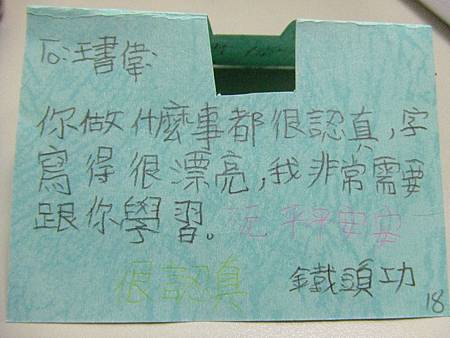 To:王書偉:
你做什麼事都很認真,字
寫得很漂亮,我非常需要
跟你學習。祝平平安安
很認真 鐵頭功
18